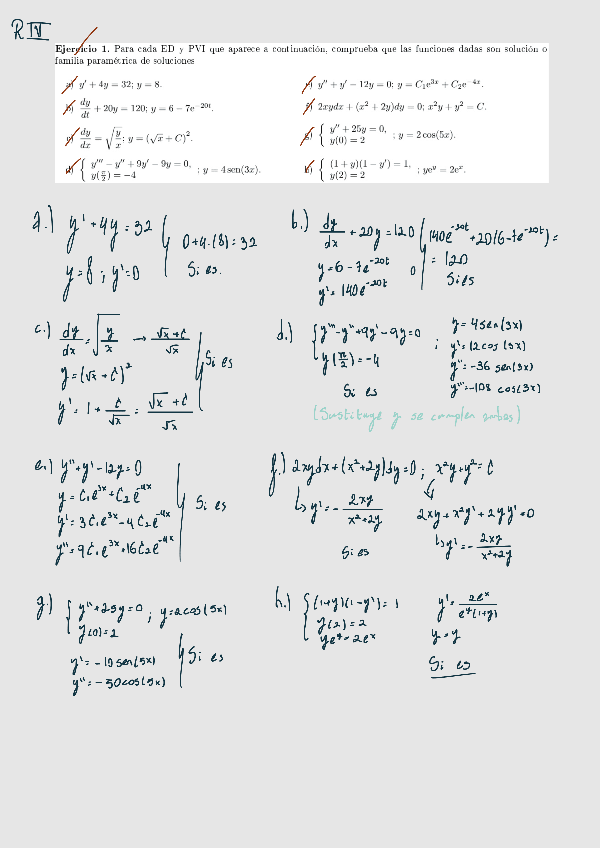 R IV
Ejercicio 1. Para cada ED y PVI que aparece a continuación, comprueba que las funciones dadas son solución o
familia paramétrica de soluciones
a) y' + 4y = 32; y = 8.
b) dy/dt + 20y = 120; y = 6 − 7e^{−20t}.
c) dy/dx = √(y/x); y = (√x + C)².
d) { y''' − y'' + 9y' − 9y = 0, y(π/2) = −4 ; y = 4 sen(3x).
e) y'' + y' − 12y = 0; y = C₁e^{3x} + C₂e^{−4x}.
f) 2xydx + (x² + 2y)dy = 0; x²y + y² = C.
g) { y'' + 25y = 0, y(0) = 2 ; y = 2 cos(5x).
h) { (1 + y)(1 − y') = 1, y(2) = 2 ; ye^y = 2e^x.
a.) y' + 4y = 32
y = 8 ; y' = 0
0 + 4·(8) = 32
Si es.
b.) dy/dx + 20y = 120
y = 6 − 7e^{−20t}
y' = 140e^{−20t}
140e^{−20t} + 20(6 − 7e^{−20t}) =
= 120
Si es
c.) dy/dx = √(y/x) → (√x + C)/√x
y = (√x + C)²
y' = 1 + C/√x = (√x + C)/√x
Si es
d.) { y''' − y'' + 9y' − 9y = 0
y(π/2) = −4 ;
Si es
y = 4 sen(3x)
y' = 12 cos(3x)
y'' = −36 sen(3x)
y''' = −108 cos(3x)
(Sustituye y se cumplen ambas)
e.) y'' + y' − 12y = 0
y = C₁e^{3x} + C₂e^{−4x}
y' = 3C₁e^{3x} − 4C₂e^{−4x}
y'' = 9C₁e^{3x} + 16C₂e^{−4x}
Si es
f.) 2xydx + (x² + 2y)dy = 0 ; x²y + y² = C
↳ y' = − 2xy/(x² + 2y)
Si es
2xy + x²y' + 2yy' = 0
↳ y' = − 2xy/(x² + 2y)
g.) { y'' + 25y = 0 ; y = 2cos(5x)
y(0) = 2
y' = −10 sen(5x)
y'' = −50cos(5x)
Si es
h.) { (1+y)(1−y') = 1
y(2) = 2
ye^y = 2e^x
y' = 2e^x/(e^y(1+y))
y = y
Si es